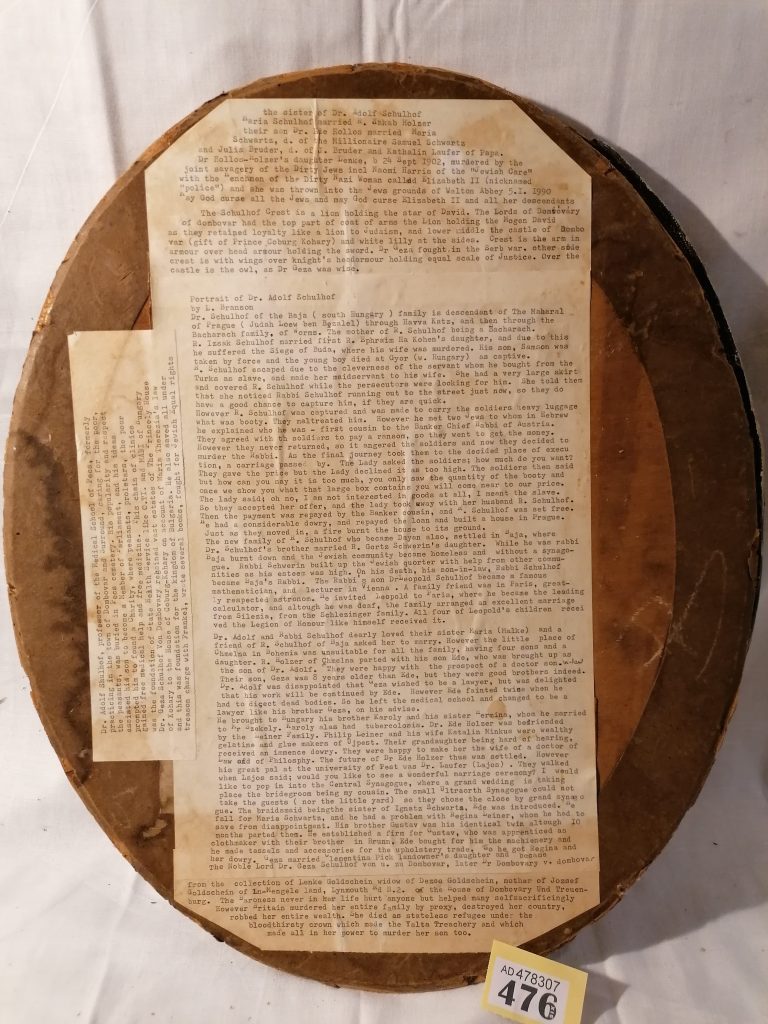 the sister of Dr. Adolf Schulhof
Maria Schulhof married R. Jakab Holzer
their son Dr. Ede Kollos married Maria
Schwartz, d. of the Millionaire Samuel Schwartz
and Julia Druder, d. of J. Druder and Kathalin Laufer of Papa.
Dr Kollos-Holzer's daughter Lenke, b 24 Sept 1902, murdered by the
joint savagery of the Dirty Jews incl Naomi Harris of the "Jewish Care"
with the Henchmen of the Dirty Nazi Woman called Elizabeth II (nicknamed
"police") and she was thrown into the Jews grounds of Walton Abbey 5.I. 1990
May God curse all the Jews and may God curse Elizabeth II and all her descendants
The Schulhof Crest is a lion holding the star of David. The Lords of Dombovary
of dombovar had the top part of coat of arms the Lion holding the Mogen David
as they retained loyalty like a lion to Judaism, and lower middle the castle of Dombo
var (gift of Prince Coburg Kohary) and white lilly at the sides. Crest is the arm in
armour over head armour holding the sword. Dr Geza fought in the Serb war, other side
crest is with wings over knight's headarmour holding equal scale of Justice. Over the
castle is the owl, as Dr Geza was wise.
Portrait of Dr. Adolf Schulhof
by L. Branson
Dr. Schulhof of the Baja ( south Hungary ) family is descendant of The Maharal
of Prague ( Judah Loew ben Bezalel) through Havva Katz, and then through the
Bacharach family, of Worms. The mother of R. Schulhof being a Bacharach.
R. Izsak Schulhof married first R. Ephraim Ha Kohen's daughter, and due to this
he suffered the Siege of Buda, where his wife was murdered. His son, Samson was
taken by force and the young boy died at Gyor (w. Hungary) as captive.
R. Schulhof escaped due to the cleverness of the servant whom he bought from the
Turks as slave, and made her maidservant to his wife. She had a very large skirt
and covered R. Schulhof while the persecutors were looking for him. She told them
that she noticed Rabbi Schulhof running out to the street just now, so they do
have a good chance to capture him, if they are quick.
However R. Schulhof was captured and was made to carry the soldiers heavy luggage
what was booty. They maltreated him. However he met two Jews to whom in Hebrew
he explained who he was - first cousin to the Banker Chief Rabbi of Austria.
They agreed with the soldiers to pay a ransom, so they went to get the money.
However they never returned, so it angered the soldiers and now they decided to
murder the Rabbi. As the final journey took them to the decided place of execu
tion, a carriage passed by. The Lady asked the soldiers; how much do you want?
They gave the price but the Lady declined it as too high. The soldiers then said
but how can you say it is too much, you only saw the quantity of the booty and
once we show you what that large box contains you will come near to our price.
The Lady said; oh no, I am not interested in goods at all, I meant the slave.
So they accepted her offer, and the lady took away with her husband R. Schulhof.
Then the payment was repayed by the Banker cousin, and R. Schulhof was set free.
He had a considerable dowry, and repayed the loan and built a house in Prague.
Just as they moved in, a fire burnt the house to its ground.
The new family of R. Schulhof who became Dayan also, settled in Baja, where
Dr. Schulhof's brother married R. Goetz Schwerin's daughter. While he was rabbi
Baja burnt down and the Jewish community became homeless and without a synago-
gue. Rabbi Schwerin built up the Jewish quarter with help from other commu-
nities as his esteem was high. On his death, his son-in-law, Rabbi Schulhof
became Baja's Rabbi. The Rabbi's son Dr Leopold Schulhof became a famous
mathematician, and lecturer in Vienna. A family friend was in Paris, great-
ly respected astronom. He invited Leopold to Paris, where he became the leading
calculator, and altough he was deaf, the family arranged an excellent marriage
from Silezia, from the Schlezinger family. All four of Leopold's children recei
ved the Legion of Honour like himself received it.
Dr. Adolf and Rabbi Schulhof dearly loved their sister Maria (Malke) and a
friend of R. Schulhof of Baja asked her to marry. However the little place of
Chmelna in Bohemia was unsuitable for all the family, having four sons and a
daughter. R. Holzer of Chmelna parted with his son Ede, who was brought up as
the son of Dr. Adolf. They were happy with the prospect of a doctor son.
Their son, Geza was 8 years older than Ede, but they were good brothers indeed.
Dr. Adolf was disappointed that Geza wished to be a lawyer, but was delighted
that his work will be continued by Ede. However Ede fainted twice when he
had to disect dead bodies. So he left the medical school and changed to be a
lawyer like his brother Geza, on his advice.
He brought to Hungary his brother Karoly and his sister Hermina, whom he married
to Dr Szekely. Karoly also had tuberculozis. Dr. Ede Holzer was befriended
by the Reiner Family. Philip Reiner and his wife Katalin Minkus were wealthy
gelatine and glue makers of Ujpest. Their grandaughter being hard of hearing,
received an immence dowry. They were happy to make her the wife of a doctor of
Law and of Philosphy. The future of Dr Ede Holzer thus was settled. However
his great pal at the university of Pest was Dr. Laufer (Lajos) . They walked
when Lajos said; would you like to see a wonderful marriage ceremony? I would
like to pop in into the Central Synagogue, where a grand wedding is taking
place the bridegroom being my cousin. The small Ultraorth Synagogue could not
take the guests ( nor the little yard) so they chose the close by grand synago
gue. The braidsmaid beingthe sister of Ignatz Schwartz, Ede was introduced. He
fall for Maria Schwartz, and he had a problem with Regina Reiner, whom he had to
save from disappointment. His brother Gustav was his identical twin altough 10
months parted them. He established a firm for Gustav, who was apprenticed as
clothmaker with their brother in Brunn. Ede bought for him the machinery and
he made tassels and accessories for the upholstery trade. So he got Regina and
her dowry. Geza married Klementina Pick landowner's daughter and became
The Noble Lord Dr. Geza Schulhof von u. zu Dombovar, later Dr Dombovary v. dombovar
from the collection of Lenke Goldschein widow of Dezso Goldschein, mother of Jozsef
Goldschein of In-Mengele land, Lynmouth Rd N.2. of the House of Dombovary Und Treuen-
burg. The Baroness never in her life hurt anyone but helped many selfsacrificingly
However Britain murdered her entire family by proxy, destroyed her country,
robbed her entire wealth. She died as stateless refugee under the
bloodthirsty crown which made the Yalta Treachery and which
made all in her power to murder her son too.
Dr. Adolf Schulhof, professor of the Medical School of Papa, formerly
practicing in the town of Dombovar and Surround, championed for the poor,
the peasants, was buried in the cemetery. His popularity and respect
assisted his son to become a Member of Parliament, and his esteem
prompted him to found a Charity, where peasants, proletars, the poor
gained free medical help and free medicine. This chain of clinics
was the foundation of State Health Service like O.T.I. and MABI of Hungary
Dr. Geza Schulhof Von Dombovary regained the estates of The Princely House
of Kohary to the House of Coburg-Kohary on account of Maria Theresa's law
and this was foundation for the kingdom of Bulgaria. He also saved all under
treason charge with Frankel, wrote several books, fought for Jewish equal rights
AD 478307
476